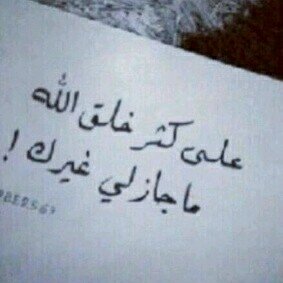 على كثر خلق الله
ما جازلي غيرك !